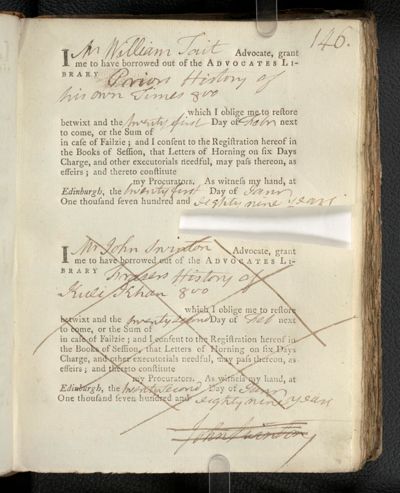 146.
I Mr William Tait Advocate, grant
me to have borrowed out of the ADVOCATES LI-
BRARY Priors History of
his own Times 8vo
which I oblige me to reſtore
betwixt and the twenty first Day of Febry next
to come, or the Sum of
in caſe of Failzie; and I conſent to the Regiſtration hereof in
the Books of Seſſion, that Letters of Horning on ſix Days
Charge, and other executorials needful, may paſs thereon, as
effeirs; and thereto conſtitute
my Procurators. As witneſs my hand, at
Edinburgh, the twenty first Day of Janry
One thouſand ſeven hundred and eighty nine years
I Mr John Swinton Advocate, grant
me to have borrowed out of the ADVOCATES LI-
BRARY Frasers History of
Kuli Khan 8vo
which I oblige me to reſtore
betwixt and the twenty second Day of Feb next
to come, or the Sum of
in caſe of Failzie; and I conſent to the Regiſtration hereof in
the Books of Seſſion, that Letters of Horning on ſix Days
Charge, and other executorials needful, may paſs thereon, as
effeirs; and thereto conſtitute
my Procurators. As witneſs my hand, at
Edinburgh, the twenty second Day of Janry
One thouſand ſeven hundred and eighty nine years
John Swinton